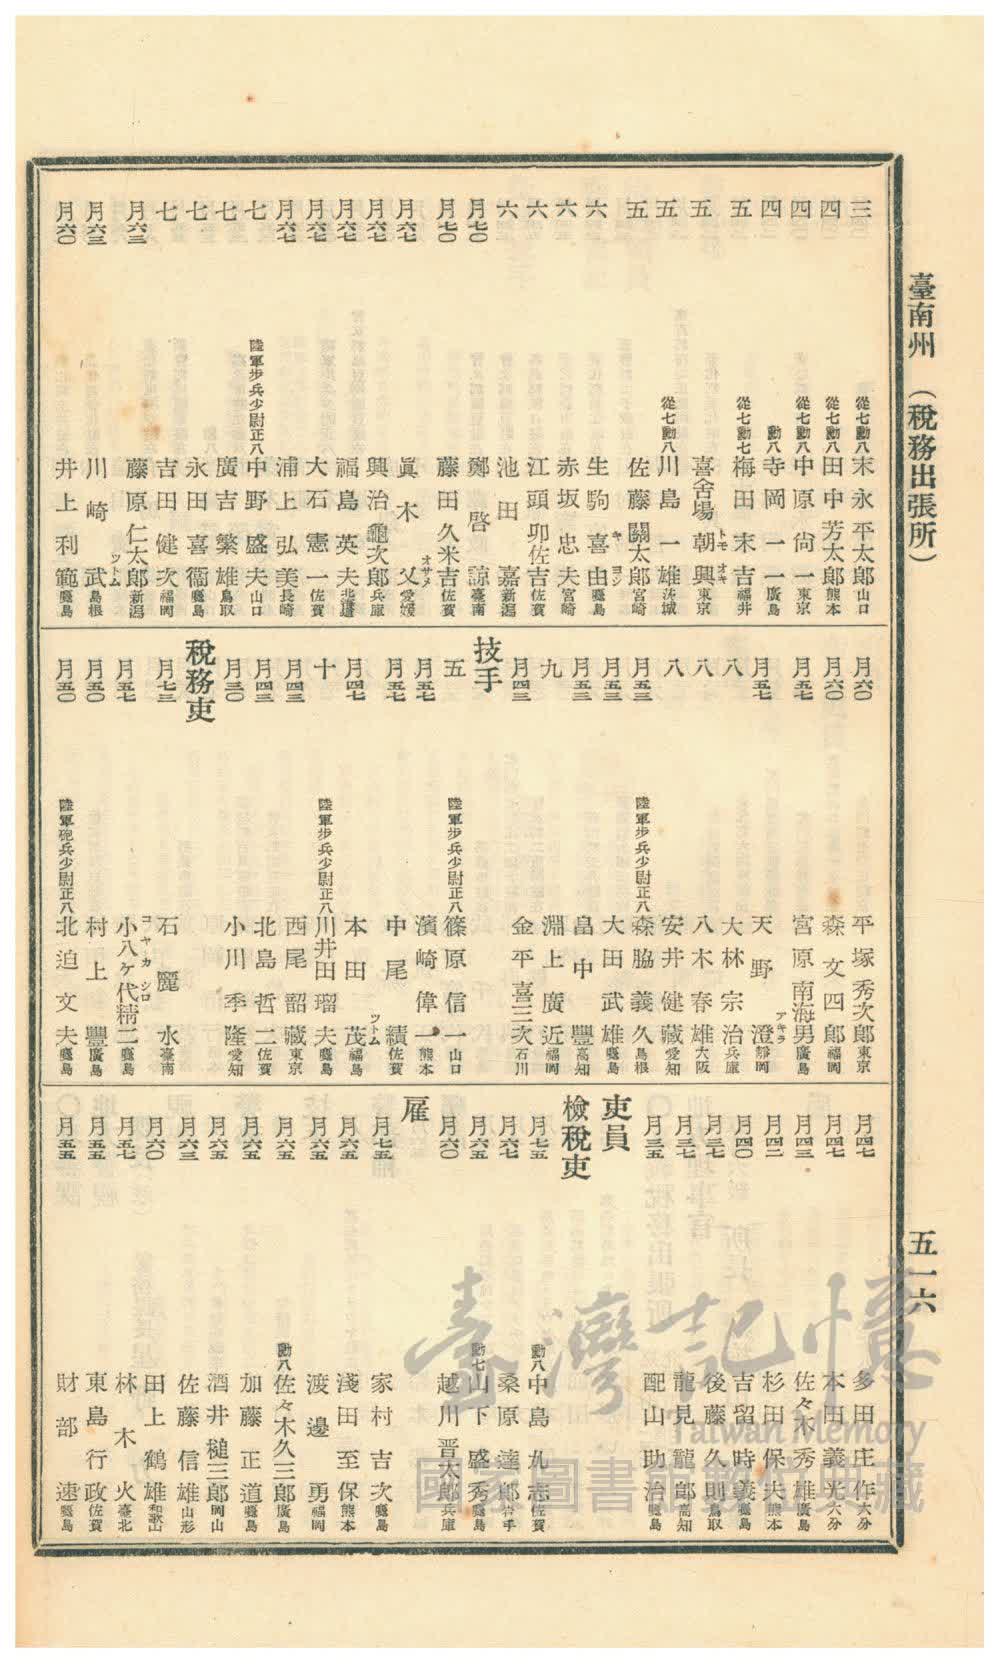 臺南州 (稅務出張所)
五一六
三 從七勳八 末永平太郎 山口
四 從七勳八 田中芳太郎 熊本
四 從七勳八 中原尙一 東京
四 勳八 寺岡一一 廣島
五 從七勳七 梅田末吉 福井
五 喜舍場朝興 トモオキ 東京
五 從七勳八 川島一雄 茨城
五 佐藤關太郎 宮崎
六 生駒喜由 キヨシ 鹿兒島
六 赤坂忠夫 宮崎
六 江頭卯佐吉 佐賀
六 池田嘉 新潟
月七〇 鄭啓諒 臺南
月七〇 藤田久米吉 佐賀
月六七 眞木父 オサメ 愛媛
月六七 興治龜次郎 兵庫
月六七 福島英夫 北海道
月六七 大石憲一 佐賀
月六七 浦上弘美 長崎
七 陸軍步兵少尉正八 中野盛夫 山口
七 廣吉繁雄 鳥取
七 永田喜衞 鹿兒島
七 吉田健次 福岡
月六三 藤原仁太郎 新潟
月六三 川崎武 ツトム 島根
月六〇 井上利範 鹿兒島
月六〇 平塚秀次郎 東京
月六〇 森文四郎 福岡
月五七 宮原南海男 廣島
月五七 天野澄 アキラ 靜岡
八 大林宗治 兵庫
八 八木春雄 大阪
八 安井健藏 愛知
月五三 陸軍步兵少尉正八 森脇義久 島根
月五三 大田武雄 鹿兒島
月五三 畠中豐 高知
九 淵上廣近 福岡
月四三 金平喜三次 石川
技手
五 陸軍步兵少尉正八 篠原信一 山口
月五七 濱崎偉一 熊本
月五七 中尾績 ツトム 佐賀
月四七 本田茂 福島
十 陸軍步兵少尉正八 川井田瑠夫 鹿兒島
月四三 西尾韶藏 東京
月四三 北島哲二 佐賀
月三〇 小川季隆 愛知
稅務吏
月七三 石麗水 臺南
月五七 小八ケ代精二 コヤカシロ 鹿兒島
月五〇 村上豐 廣島
月五〇 陸軍砲兵少尉正八 北迫文夫 鹿兒島
月四七 多田庄作 大分
月四七 本田義光 大分
月四三 佐々木秀雄 廣島
月四二 杉田保夫 熊本
月四〇 吉留時義 鹿兒島
月三七 後藤久則 鳥取
月三七 龍見龍郎 高知
月三五 配山助治 鹿兒島
吏員
檢稅吏
月七五 勳八 中島九志 佐賀
月六七 桑原達郎 岩手
月六五 勳七 山下盛秀 鹿兒島
月六〇 越川晋太郎 兵庫
雇
月七五 家村吉次 鹿兒島
月六五 淺田至保 熊本
月六五 渡邊勇 福岡
月六五 勳八 佐々木久三郎 廣島
月六五 加藤正道 鹿兒島
月六五 酒井槌三郎 岡山
月六三 佐藤信雄 山形
月六〇 田上鶴雄 和歌山
月五七 林木火 臺北
月五五 東島行政 佐賀
月五五 財部速 鹿兒島
臺灣記憶
Taiwan Memory
國家圖書館數位典藏